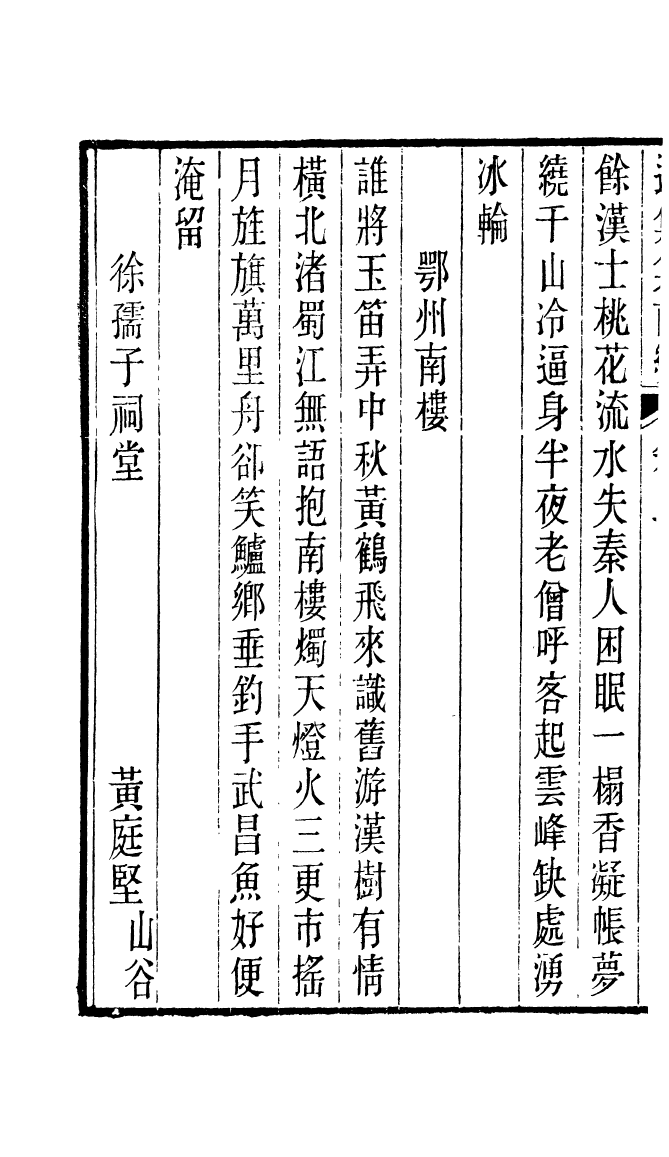 餘漢士桃花流水失秦人困眠一榻香凝帳夢
繞千山冷逼身半夜老僧呼客起雲峰缺處湧
冰輪
鄂州南樓
誰將玉笛弄中秋黃鶴飛來識舊游漢樹有情
橫北渚蜀江無語抱南樓燭天燈火三更市搖
月旌旗萬里舟卻笑鱸鄉垂釣手武昌魚好便
淹留
徐孺子祠堂　黃庭堅山谷